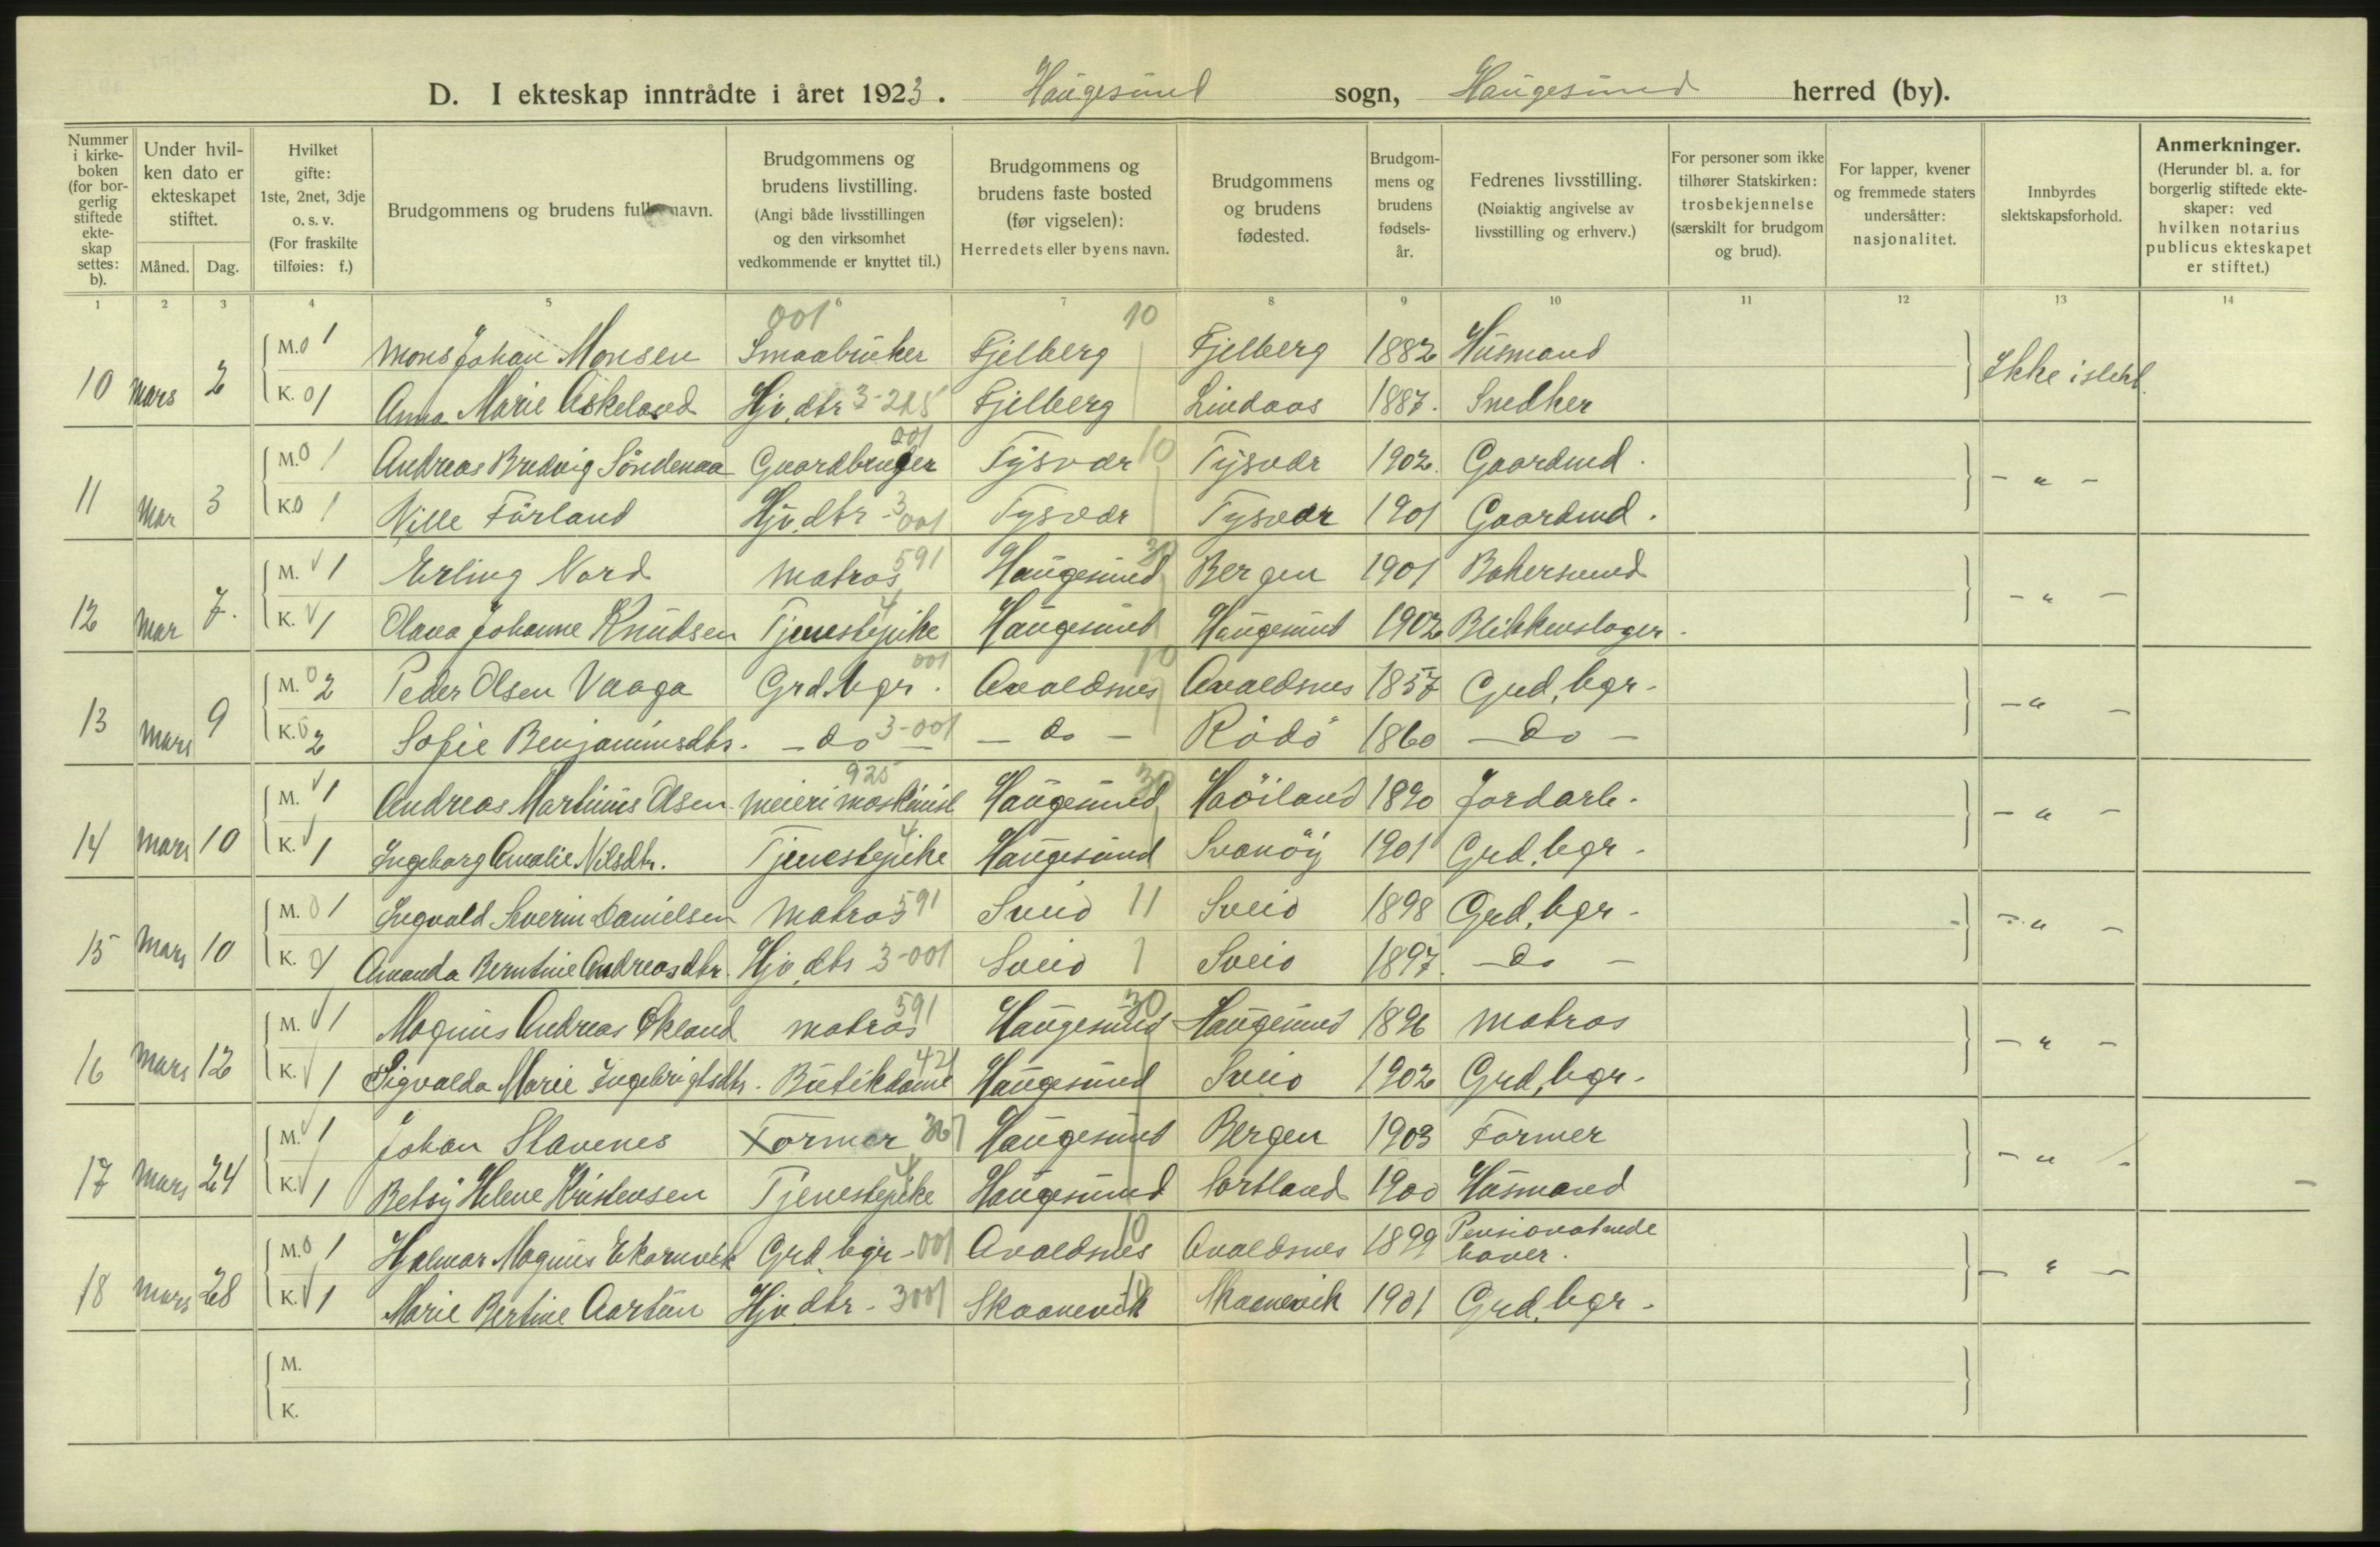 D. I ekteskap inntrådte i året 1923. Haugesund sogn, Haugesund herred (by).
Nummer i kirkeboken (for borgerlig stiftede ekteskap settes: b).
Under hvilken dato er ekteskapet stiftet.
Måned. Dag.
Hvilket gifte: 1ste, 2net, 3dje o. s. v. (For fraskilte tilføies: f.)
Brudgommens og brudens fulle navn.
Brudgommens og brudens livstilling. (Angi både livsstillingen og den virksomhet vedkommende er knyttet til.)
Brudgommens og brudens faste bosted (før vigselen): Herredets eller byens navn.
Brudgommens og brudens fødested.
Brudgommens og brudens fødselsår.
Fedrenes livsstilling. (Nøiaktig angivelse av livsstilling og erhverv.)
For personer som ikke tilhører Statskirken: trosbekjennelse (særskilt for brudgom og brud).
For lapper, kvener og fremmede staters undersåtter: nasjonalitet.
Innbyrdes slektskapsforhold.
Anmerkninger. (Herunder bl. a. for borgerlig stiftede ekteskaper: ved hvilken notarius publicus ekteskapet er stiftet.)
1 2 3 4 5 6 7 8 9 10 11 12 13 14
001 10
10 Mars 2 M. 0 1 Mons Johan Monsen Smaabruker Fjelberg Fjelberg 1882 Husmand Ikke i slekt.
K. 0 1 Anna Marie Askeland Hjv. dtr 3-215 Fjelberg Lindaas 1887. Snedker
11 Mar 3 M. 0 1 Andreas Brudvig Söndenaa Gaardbruger 001 Tysvær 10 Tysvær 1902. Gaardmd. - " -
K. 0 1 Nille Förland Hjv. dtr - 3 001 Tysvær Tysvær 1901 Gaardmd.
12 Mar 7. M. √ 1 Erling Nord Matros 591 Haugesund 30 Bergen 1901 Bakersvend - " -
K. √ 1 Olava Johanne Knudsen Tjenestepike 4 Haugesund Haugesund 1902 Blikkenslager.
13 Mars 9 M. 0 2 Peder Olsen Vaaga Grd. bgr. 001 Avaldsnes 10 Avaldsnes 1857 Grd. bgr. - " -
K. 0 2 Sofie Benjaminsdtr. - do - 3-001 - do - Rödö 1860 - do -
14 Mars 10 M. √ 1 Andreas Martinius Olsen Meierimaskinist 925 Haugesund 30 Haöiland 1890 Jordarb. - " -
K. √ 1 Ingeborg Amalie Nilsdtr. Tjenestepike 4 Haugesund Svanöy 1901 Grd. bgr.
15 Mars 10 M. 0 1 Ingvald Severin Danielsen Matros 591 Sveio 11 Sveio 1898 Grd. bgr. - " -
K. 0 1 Amanda Berntine Andreasdtr. Hjv. dtr 3-001 Sveio Sveio 1897. - do -
16 Mars 12 M. √ 1 Magnus Andreas Økland Matros 591 Haugesund 30 Haugesund 1896 Matros - " -
K. √ 1 Sigvalda Marie Ingebrigtsdtr. Butikdame 421 Haugesund Sveio 1902 Grd. bgr.
17 Mars 24 M. √ 1 Johan Stavenes Former 367 Haugesund Bergen 1903 Former - " -
K. √ 1 Betsy Helene Kristensen Tjenestepike 4 Haugesund Sortland 1900 Husmand
18 Mars 28 M. 0 1 Hjalmar Magnus Ekornvik Grd. bgr - 001 Avaldsnes 10 Avaldsnes 1899 Pensionatinde haver. - " -
K. √ 1 Marie Bertine Aartun Hjv. dtr - 3 001 Skaanevik 11 Skaanevik 1901 Grd. bgr.
M.
K.